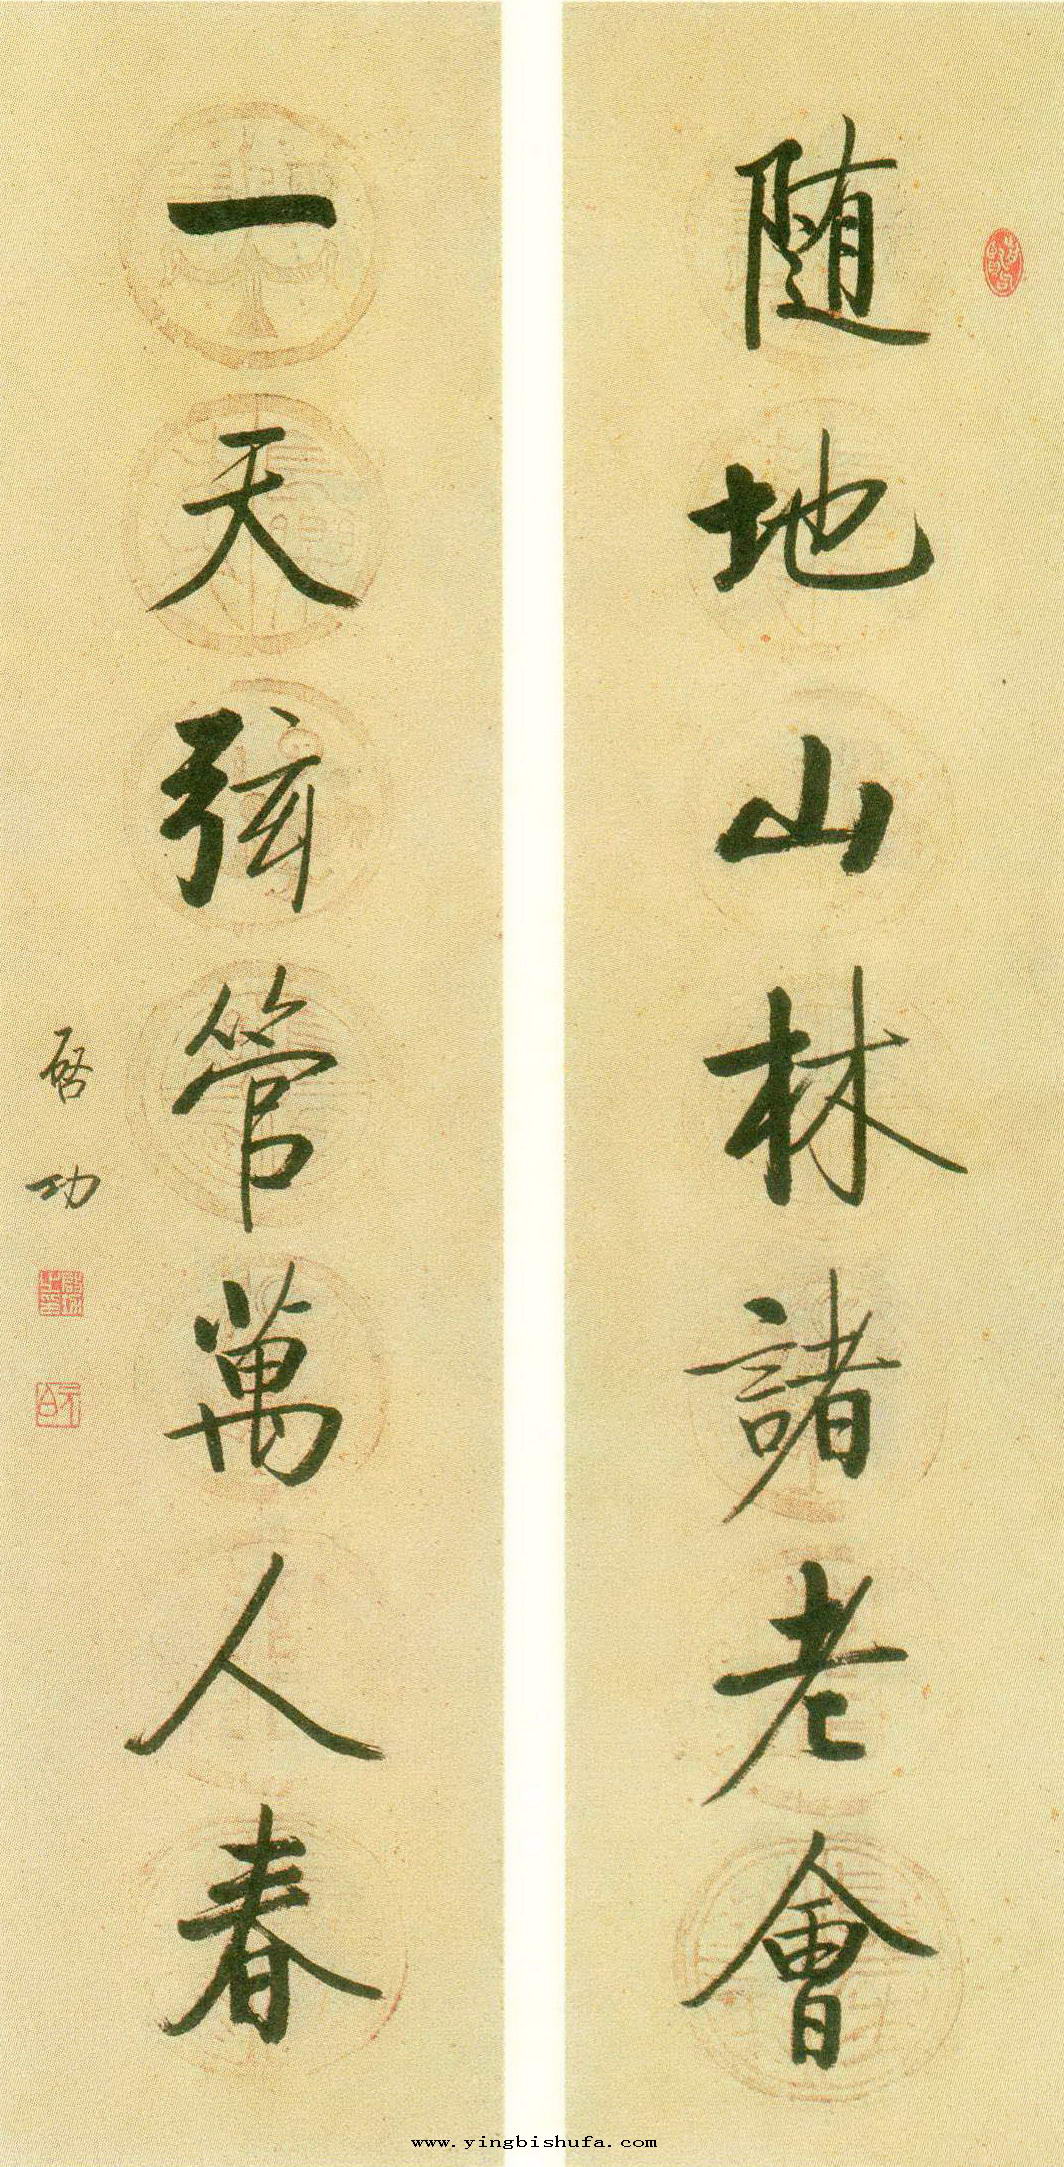 随地山林諸老會
一天弦管萬人春
启功
www.yingbishufa.com